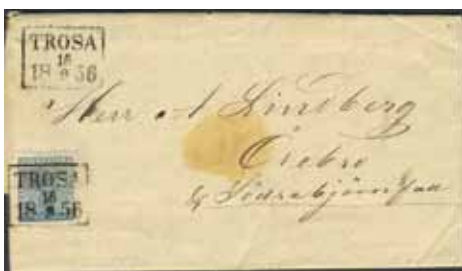 TROSA
18 56
Herr A Lindberg
Örebro
TROSA
18 56